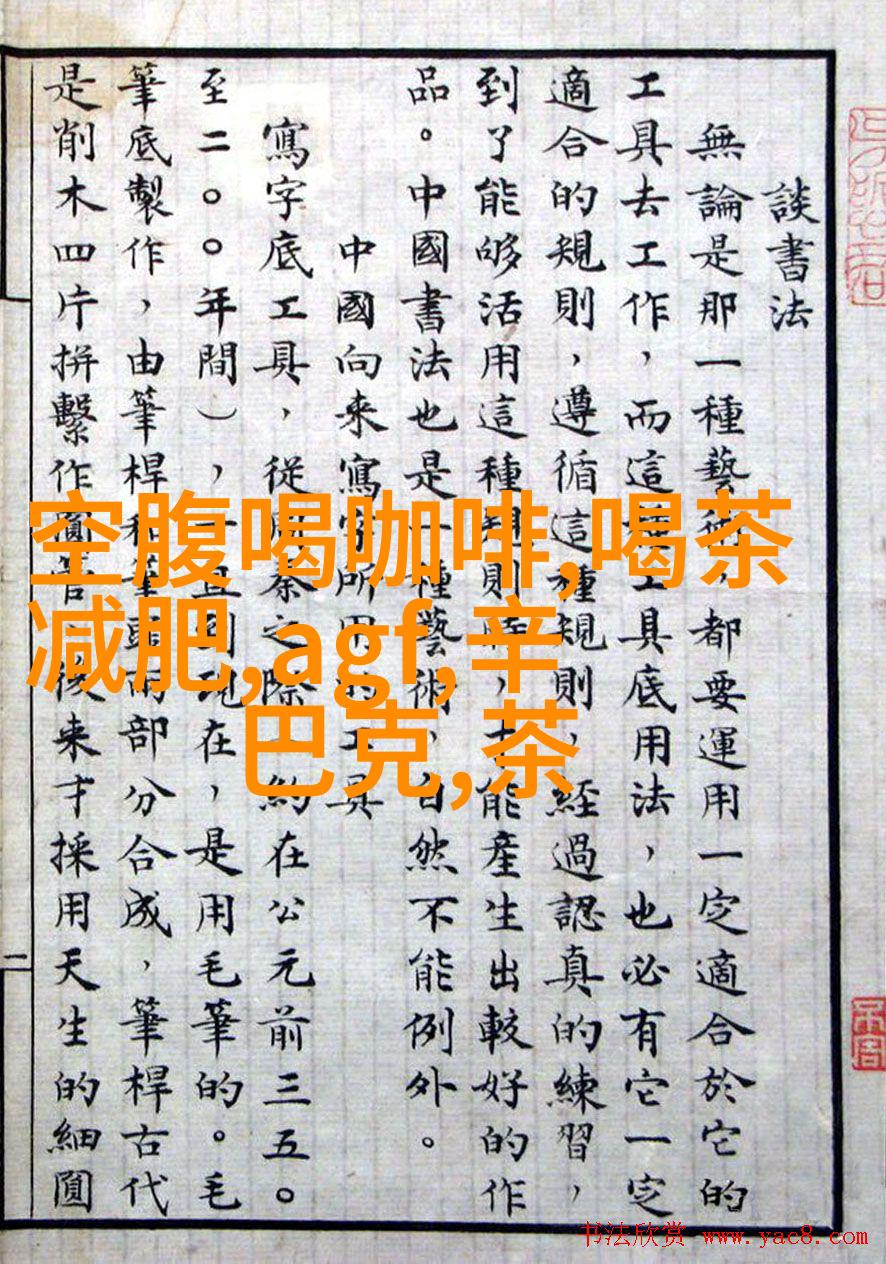 談書法
無論是那一種藝術，都要運用一定適合於它的
工具去工作，而這種工具底用法，也必有它一定
適合的規則，遵循這種規則，經過認真的練習，
到了能够活用這種規則時，才能產生出較好的作
品。中國書法也是一種藝術，自然不能例外。
中國向来寫字所用的工具
寫字底工具，從周秦之際 約在公元前三五〇
至二〇〇年間），一直到現在，是用毛筆的。毛
筆底製作，由筆桿和筆頭兩部分合成，筆桿古代
是削木四片拼繫作圓管，後来才採用天生的細圓
二
空腹喝咖啡,喝茶
减肥,agf,辛
巴克,茶
书法欣赏 www.yac8.com